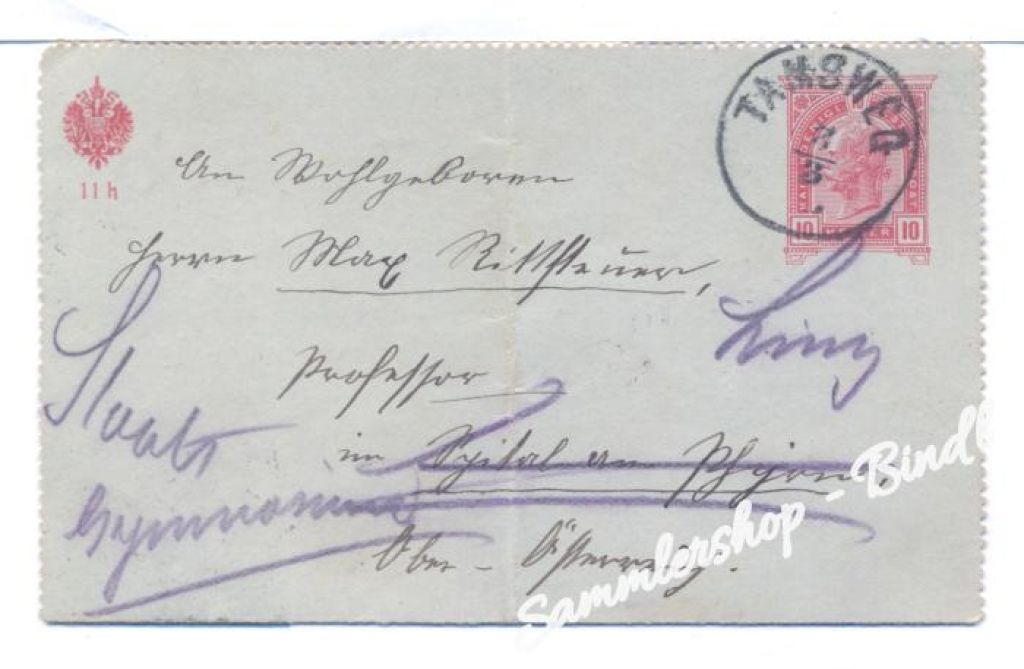 11 h
TAMSWEG
10 HELLER 10
An Wohlgeboren
Herrn Max Rittsteuer,
Linz
Professor
Staats
im Spital am Phyrn,
Gymnasium
Ober-Österreich.
Sammlershop - Bindl